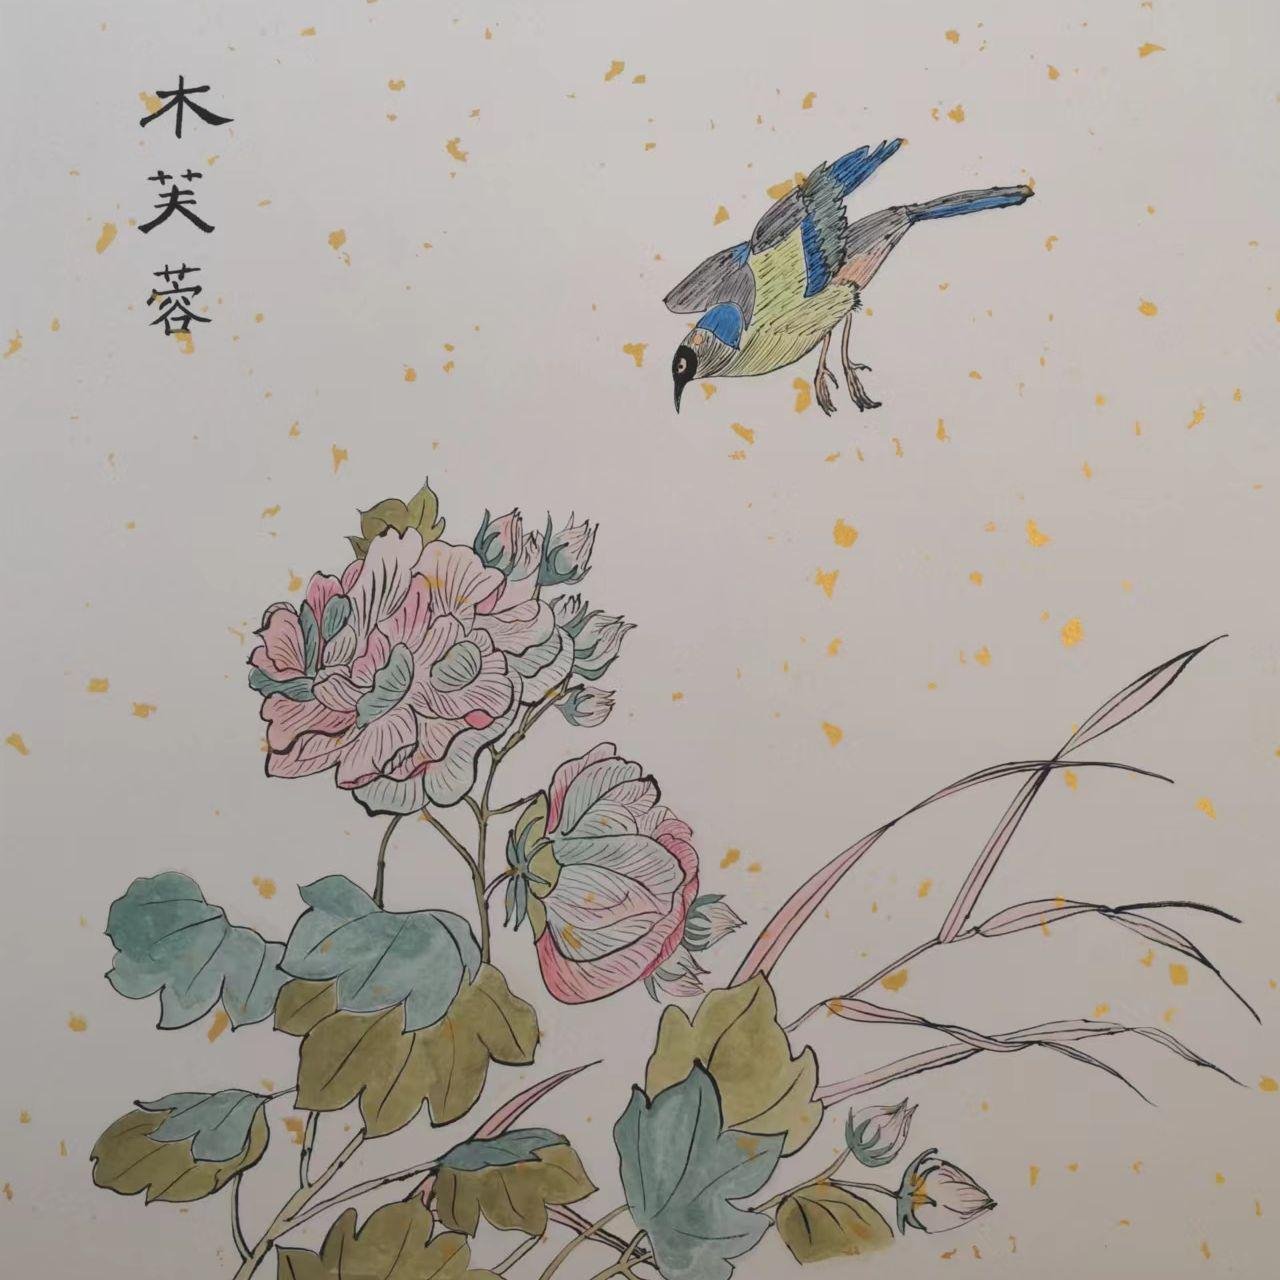 木芙蓉